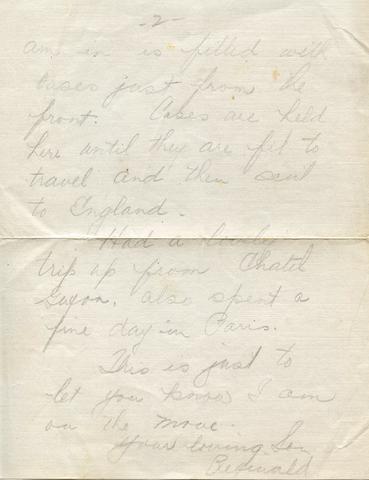 -2-
am in is filled with
cases just from the
front. Cases are held
here until they are fit to
travel and then sent
to England.
Had a lovely
trip up from Chatel
Guyon. also spent a
fine day in Paris.
This is just to
let you know I am
on the move.
Your loving Son